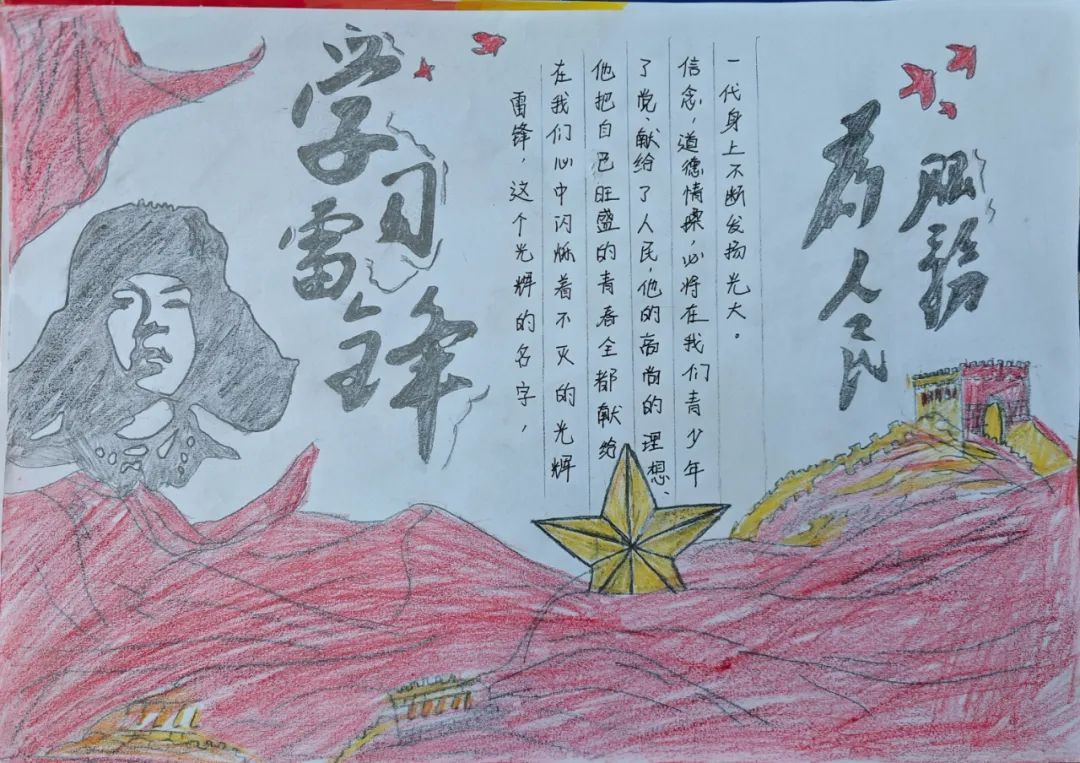 学习
雷锋
雷锋，这个光辉的名字，
在我们心中闪烁着不灭的光辉
他把自己旺盛的青春全都献给
了党、献给了人民，他的高尚的理想、
信念，道德情操，必将在我们青少年
一代身上不断发扬光大。
为人民
服務